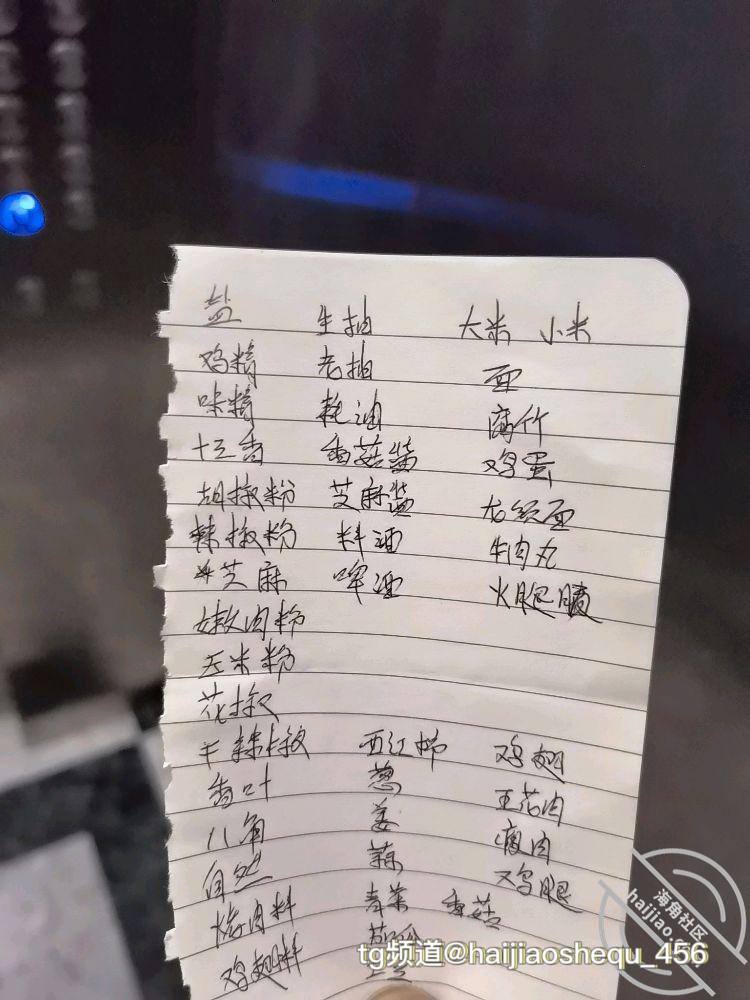 盐 生抽 大米 小米
鸡精 老抽 面
味精 耗油 腐竹
十三香 香菇酱 鸡蛋
胡椒粉 芝麻酱 龙须面
辣椒粉 料酒 牛肉丸
芝麻 啤酒 火腿肠
嫩肉粉
玉米粉
花椒
干辣椒 西红柿 鸡翅
香叶 葱 五花肉
八角 姜 瘦肉
自然 蒜 鸡腿
烤肉料 青菜 香菇
鸡翅料
tg频道@haijiaoshequ_456
海角社区